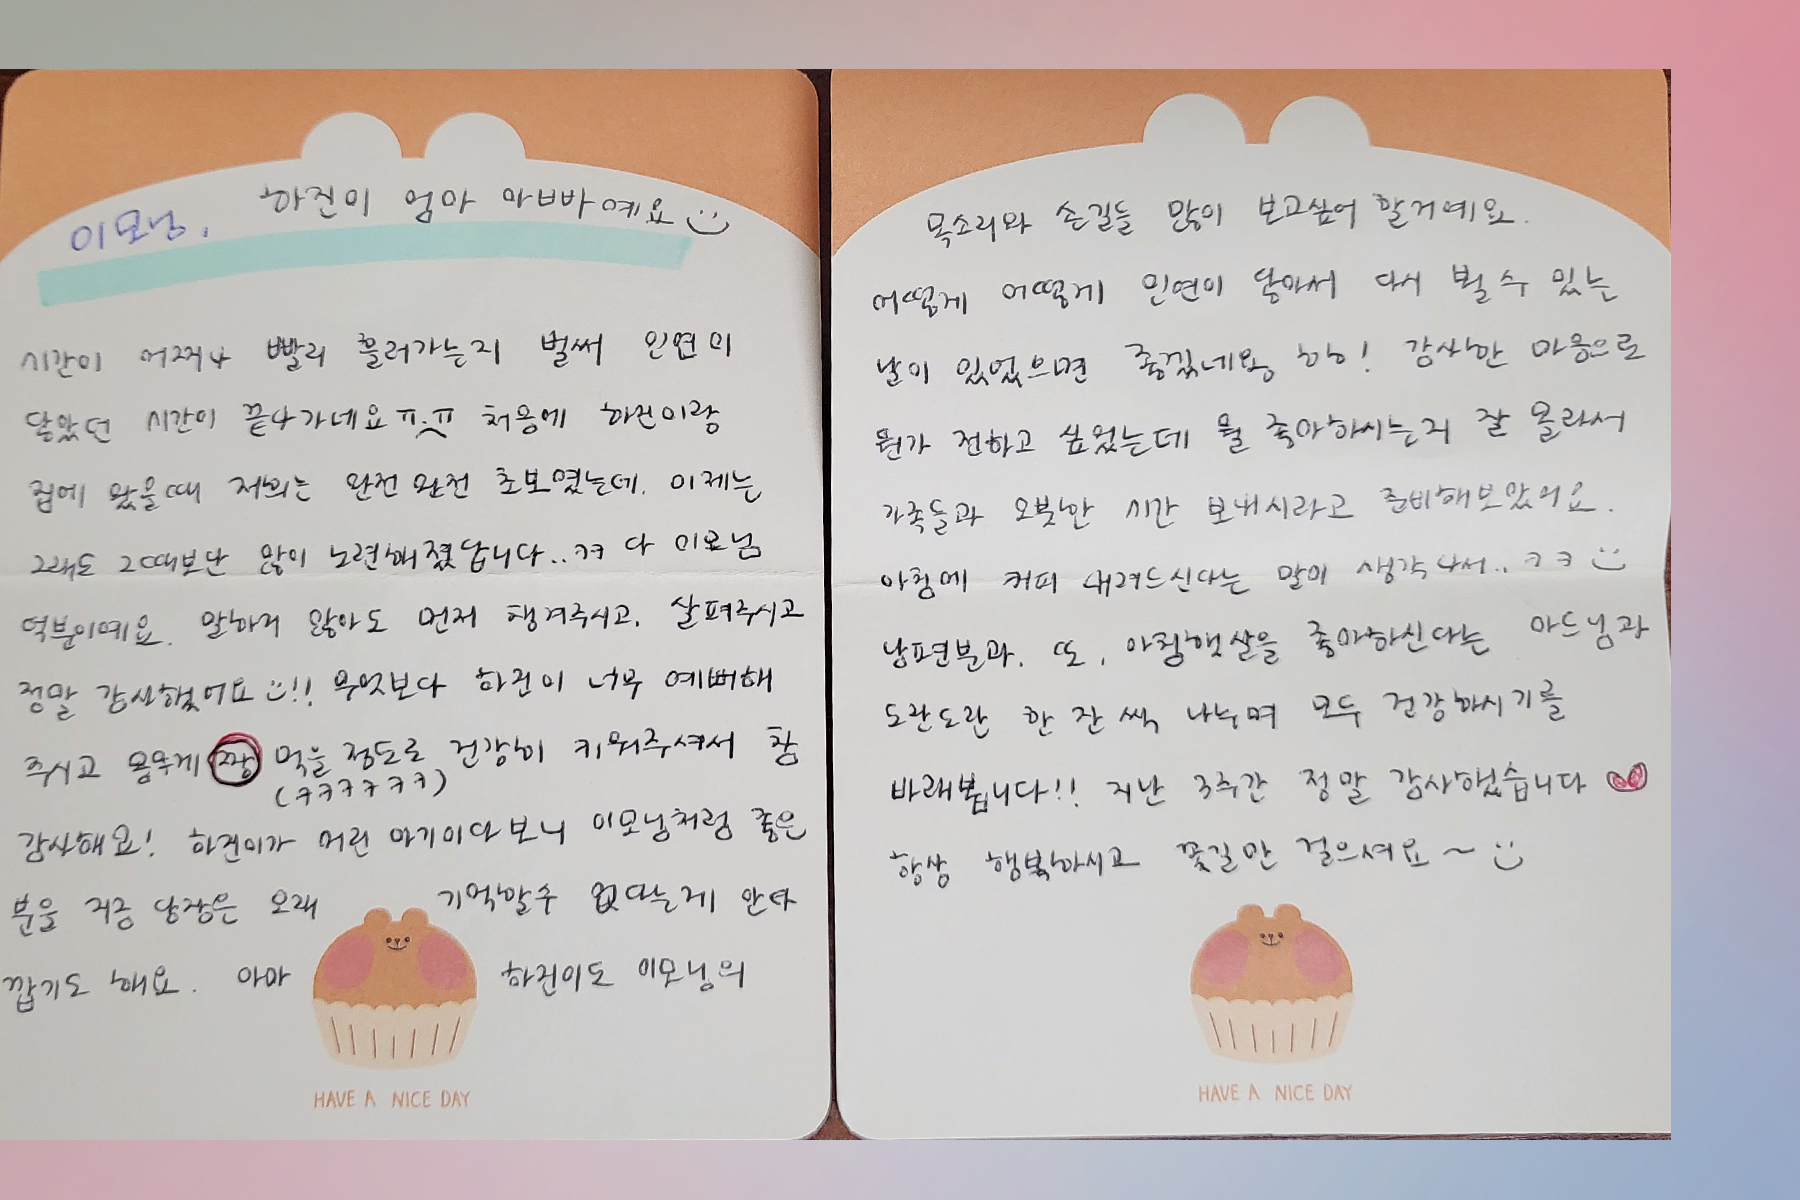 이모님, 하진이 엄마 아빠예요
시간이 어찌나 빨리 흘러가는지 벌써 인연이
닿았던 시간이 끝나가네요ㅠ.ㅠ 처음에 하진이랑
집에 왔을때 저희는 완전 완전 초보였는데, 이제는
그래도 그때보단 많이 노련해졌답니다..ㅋㅋ 다 이모님
덕분이예요. 말하지 않아도 먼저 챙겨주시고, 살펴주시고
정말 감사했어요!! 무엇보다 하진이 너무 예뻐해
주시고 용쓰게 짱 먹을 정도로 건강히 키워주셔서 참
(ㅋㅋㅋㅋㅋㅋ)
감사해요! 하진이가 어린 아기이다보니 이모님처럼 좋은
분을 지금 당장은 오래 기억할수 없다는게 안타
깝기도 해요. 아마 하진이도 이모님의
HAVE A NICE DAY
목소리와 손길들 많이 보고싶어 할거예요.
어떻게 어떻게 인연이 닿아서 다시 뵐 수 있는
날이 있었으면 좋겠네요, 하하! 감사한 마음으로
뭔가 전하고 싶었는데 뭘 좋아하시는지 잘 몰라서
가족들과 오붓한 시간 보내시라고 준비해보았어요.
아침에 커피 내려드신다는 말이 생각나서..ㅋㅋ
남편분과, 또, 아침햇살을 좋아하신다는 아드님과
도란도란 한 잔 씩 나누며 모두 건강하시기를
바래봅니다!! 지난 3주간 정말 감사했습니다
항상 행복하시고 꽃길만 걸으셔요~
HAVE A NICE DAY